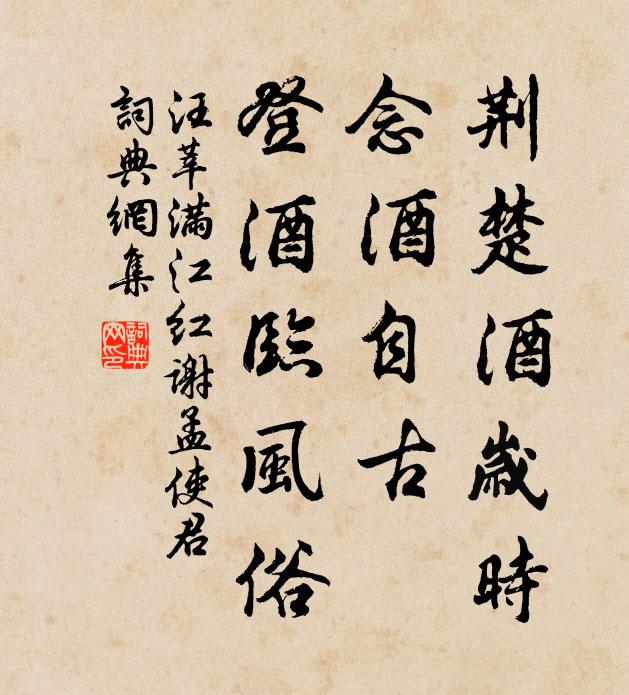 荆楚酒歲時
念酒自古
登酒臨風俗
汪莘滿江紅謝孟使君
詞典網集
詞典網印